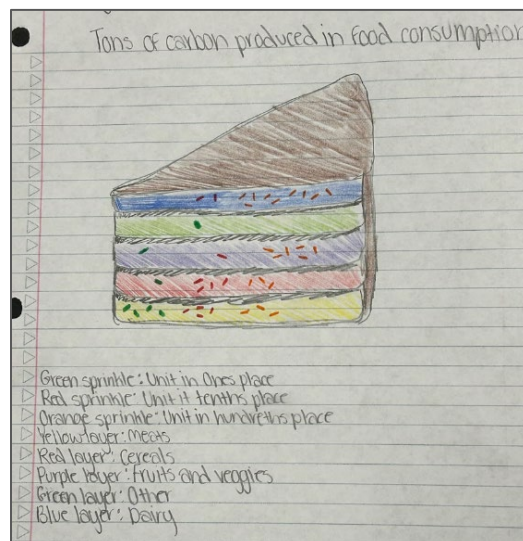 Tons of carbon produced in food consumption
Green sprinkle: Unit in Ones place
Red sprinkle: Unit it tenths place
Orange sprinkle: Unit in hundreths place
Yellow layer: Meats
Red layer: Cereals
Purple layer: Fruits and veggies
Green layer: Other
Blue layer: Dairy